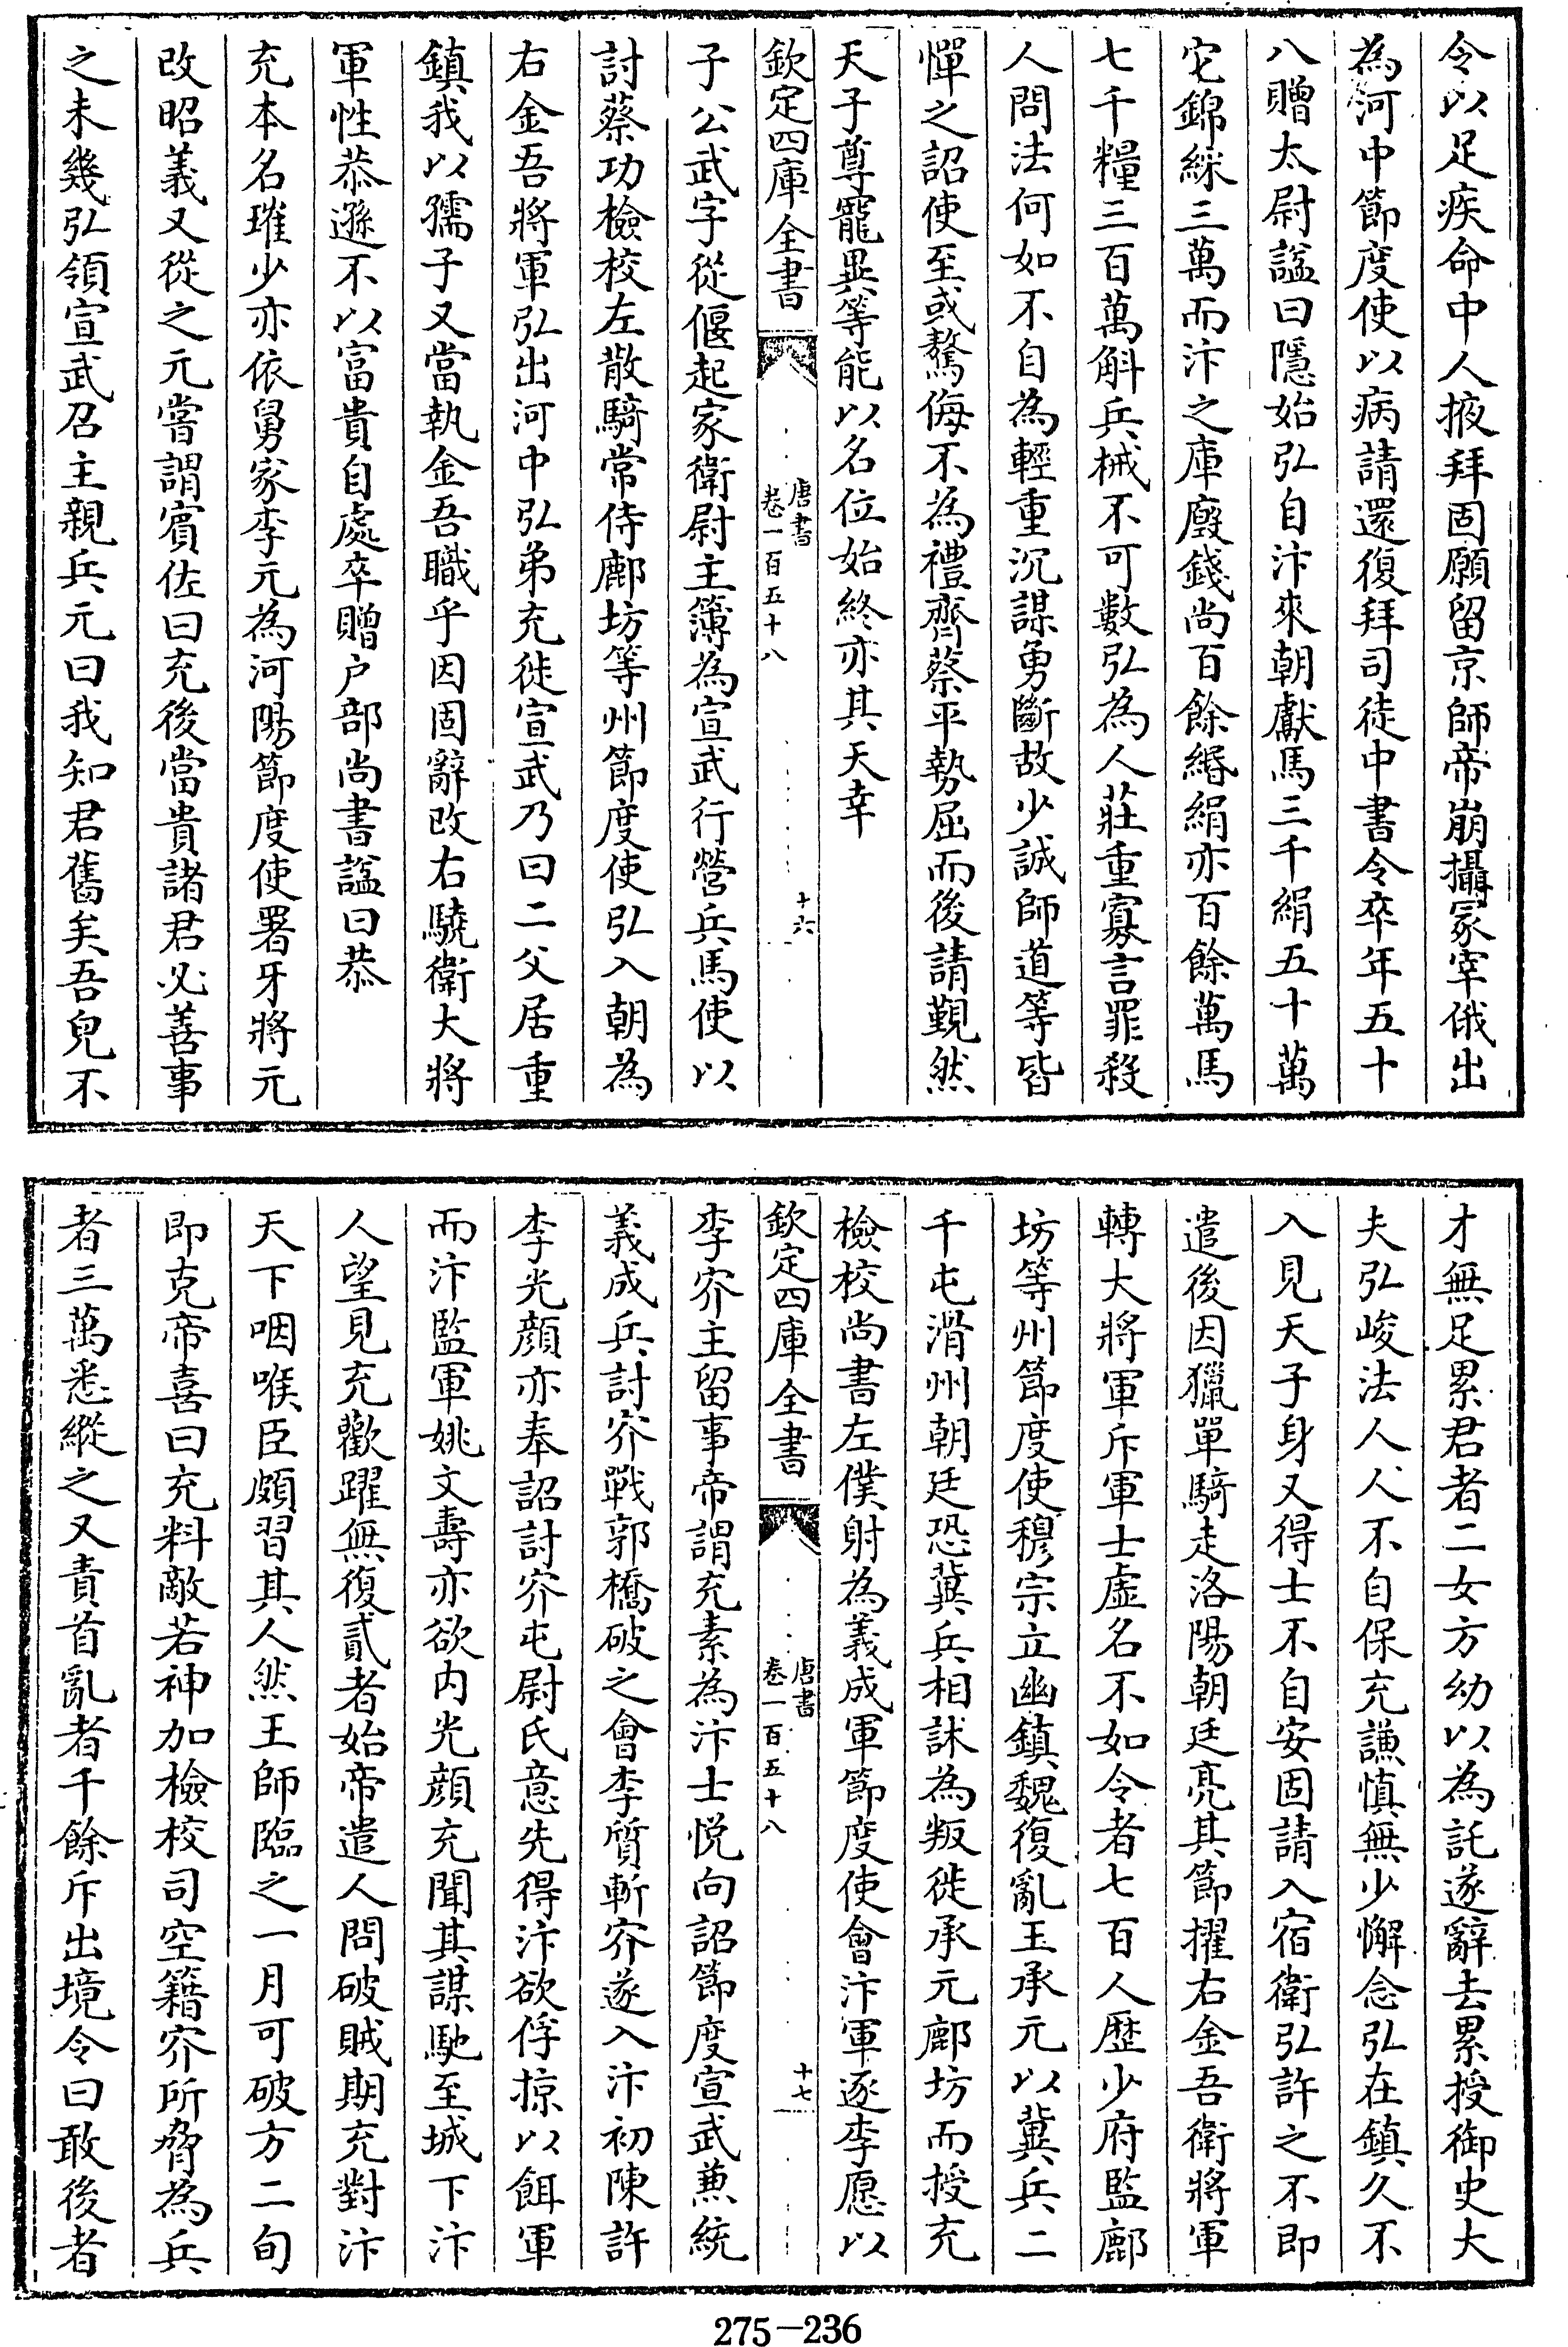 令以足疾命中人掖拜固願留京師帝崩攝冢宰俄出
為河中節度使以病請還復拜司徒中書令卒年五十
八贈太尉諡曰隱始弘自汴來朝獻馬三千絹五十萬
它錦綵三萬而汴之庫廏錢尚百餘緡絹亦百餘萬馬
七千糧三百萬斛兵械不可數弘為人莊重寡言罪殺
人問法何如不自為輕重沉謀勇斷故少誠師道等皆
憚之詔使至或驁侮不為禮齊蔡平勢屈而後請覲然
天子尊寵異等能以名位始終亦其天幸
欽定四庫全書
唐書
卷一百五十八
十六
子公武字從偃起家衛尉主簿為宣武行營兵馬使以
討蔡功檢校左散騎常侍鄜坊等州節度使弘入朝為
右金吾將軍弘出河中弘弟充徙宣武乃曰二父居重
鎮我以孺子又當執金吾職乎因固辭改右驍衛大將
軍性恭遜不以富貴自處卒贈户部尚書諡曰恭
充本名璀少亦依舅家李元為河陽節度使署牙將元
改昭義又從之元嘗謂賓佐曰充後當貴諸君必善事
之未幾弘領宣武召主親兵元曰我知君舊矣吾兒不
才無足累君者二女方幼以為託遂辭去累授御史大
夫弘峻法人人不自保充謙慎無少懈念弘在鎮久不
入見天子身又得士不自安固請入宿衛弘許之不即
遣後因獵單騎走洛陽朝廷亮其節擢右金吾衛將軍
轉大將軍斥軍士虛名不如令者七百人歴少府監鄜
坊等州節度使穆宗立幽鎮魏復亂王承元以冀兵二
千屯滑州朝廷恐冀兵相訹為叛徙承元鄜坊而授充
檢校尚書左僕射為義成軍節度使會汴軍逐李愿以
欽定四庫全書
唐書
卷一百五十八
十七
李㝏主留事帝謂充素為汴士悦向詔節度宣武兼統
義成兵討㝏戰郭橋破之會李質斬㝏遂入汴初陳許
李光顔亦奉詔討㝏屯尉氏意先得汴欲俘掠以餌軍
而汴監軍姚文壽亦欲内光顔充聞其謀馳至城下汴
人望見充歡躍無復貳者始帝遣人問破賊期充對汴
天下咽喉臣頗習其人然王師臨之一月可破方二旬
即克帝喜曰充料敵若神加檢校司空籍㝏所脅為兵
者三萬悉縱之又責首亂者千餘斥出境令曰敢後者
275-236